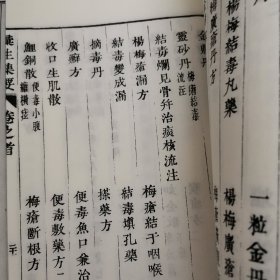 一粒金丹
楊梅廣瘡
楊梅結毒丸藥
靈砂丹 楊梅結毒 流注
結毒爛見骨并治痰核流注
楊梅瘡漏方 梅瘡結于咽喉
結毒變成漏 結毒填孔藥
搐毒丹 搽藥方
廣癬方 便毒魚口兼治
收口生肌散 便毒敷藥方二
銅散 便毒小腹 橫痃 梅瘡斷根方
生集要 卷之首 二十